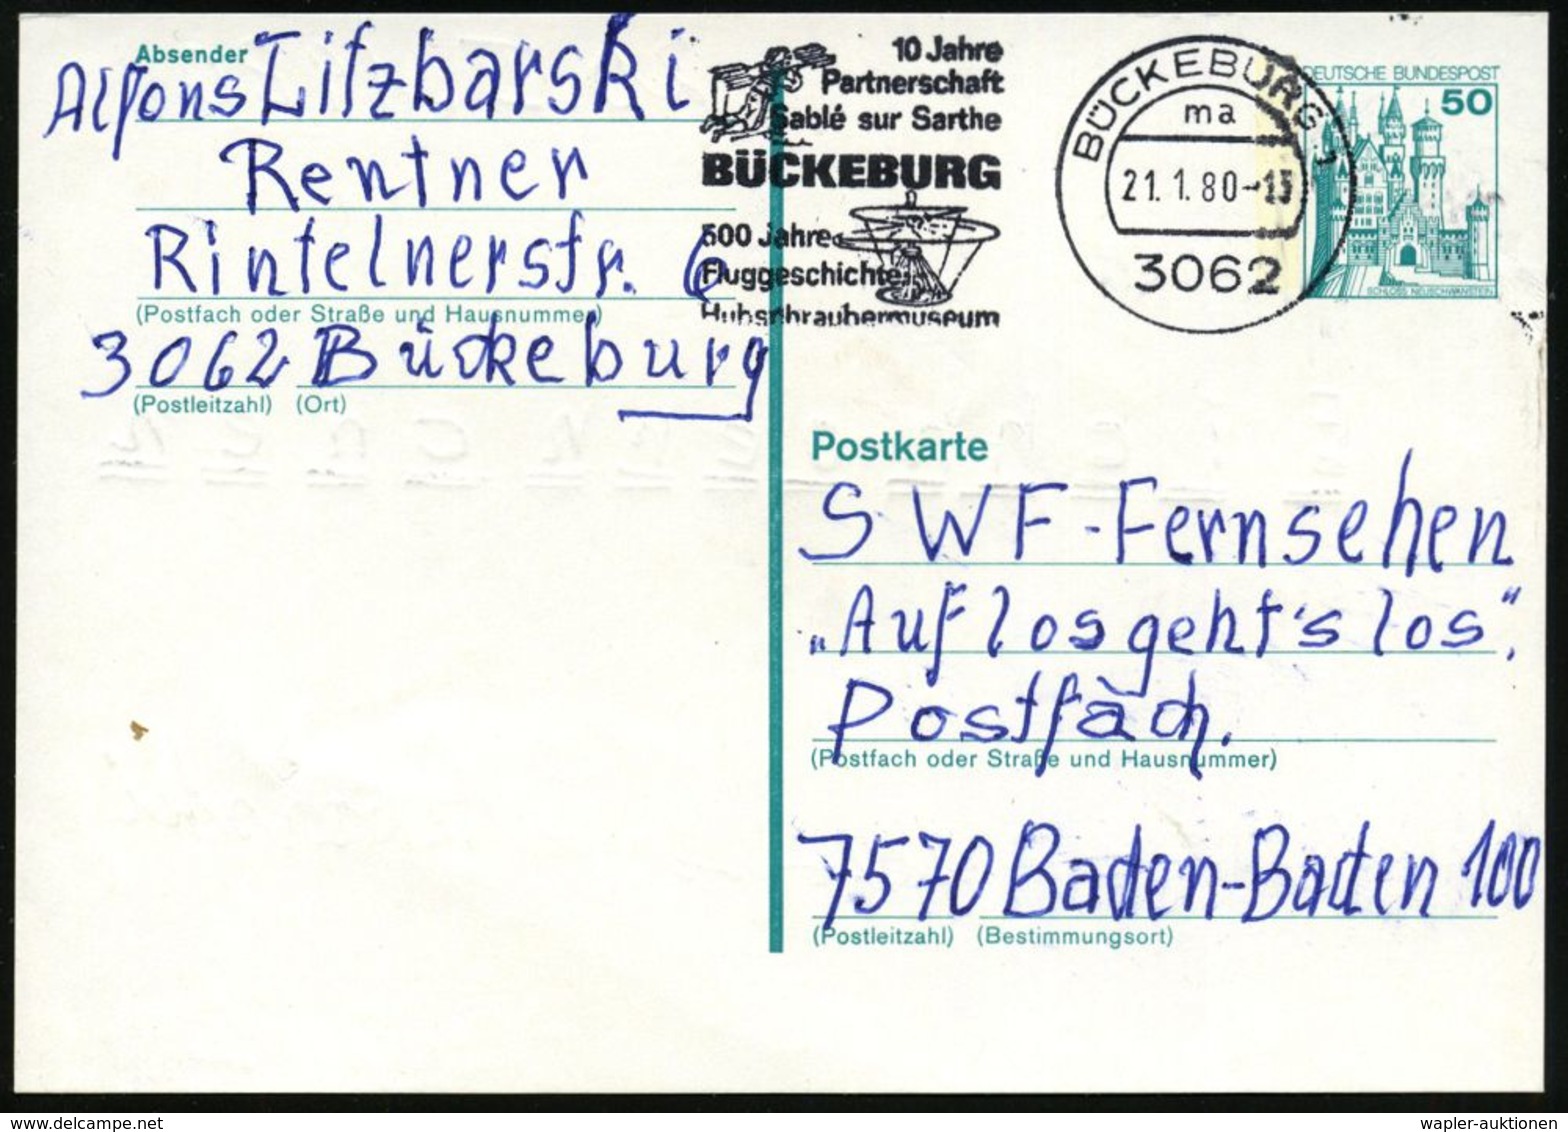 Absender
Alfons Litzbarski
Rentner
Rintelnerstr. 6
(Postfach oder Straße und Hausnummer)
3062 Bückeburg
(Postleitzahl) (Ort)
10 Jahre
Partnerschaft
Sablé sur Sarthe
BÜCKEBURG
500 Jahre
Fluggeschichte
Hubschraubermuseum
BÜCKEBURG 1
ma
21.1.80-15
3062
DEUTSCHE BUNDESPOST
50
SCHLOSS NEUSCHWANSTEIN
Postkarte
SWF-Fernsehen
„Auf los geht's los".
Postfach.
(Postfach oder Straße und Hausnummer)
7570 Baden-Baden 100
(Postleitzahl) (Bestimmungsort)
wapler-auktionen